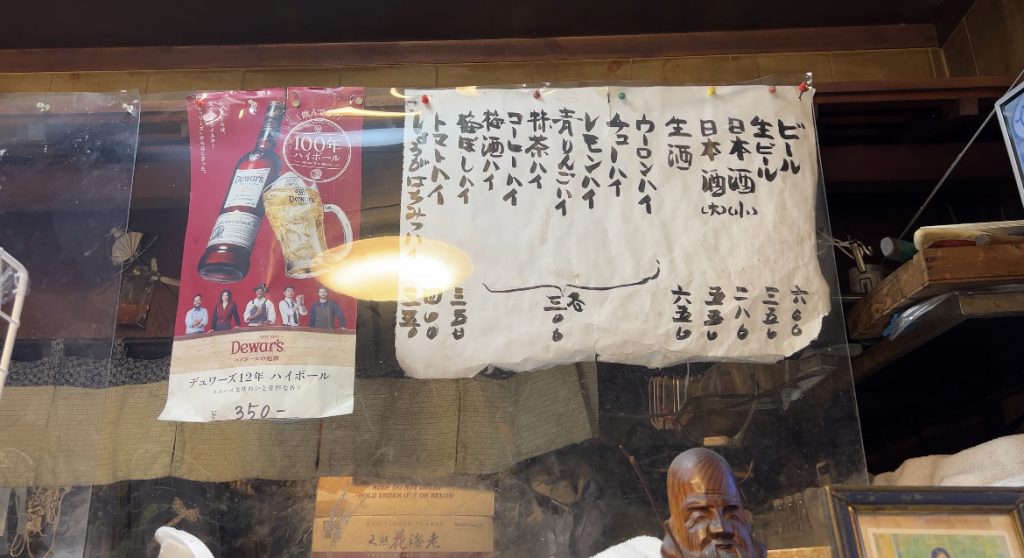 ビール 六〇〇
生ビール 三五〇
日本酒(小) 二八〇
日本酒(大) 五五〇
生酒 六五〇
ウーロンハイ
チューハイ
レモンハイ
青りんごハイ
抹茶ハイ
コーヒーハイ
梅酒ハイ
各三〇〇
梅ぼしハイ 三五〇
トマトハイ 四〇〇
しょうがはちみつハイ
100年
ハイボール
Dewar's
Dewar's
Dewar's
ハイボールの起源
デュワーズ12年 ハイボール
350-
KEEP DO NOT
HOLD UNDER 0°F OR BELOW
天然花海老